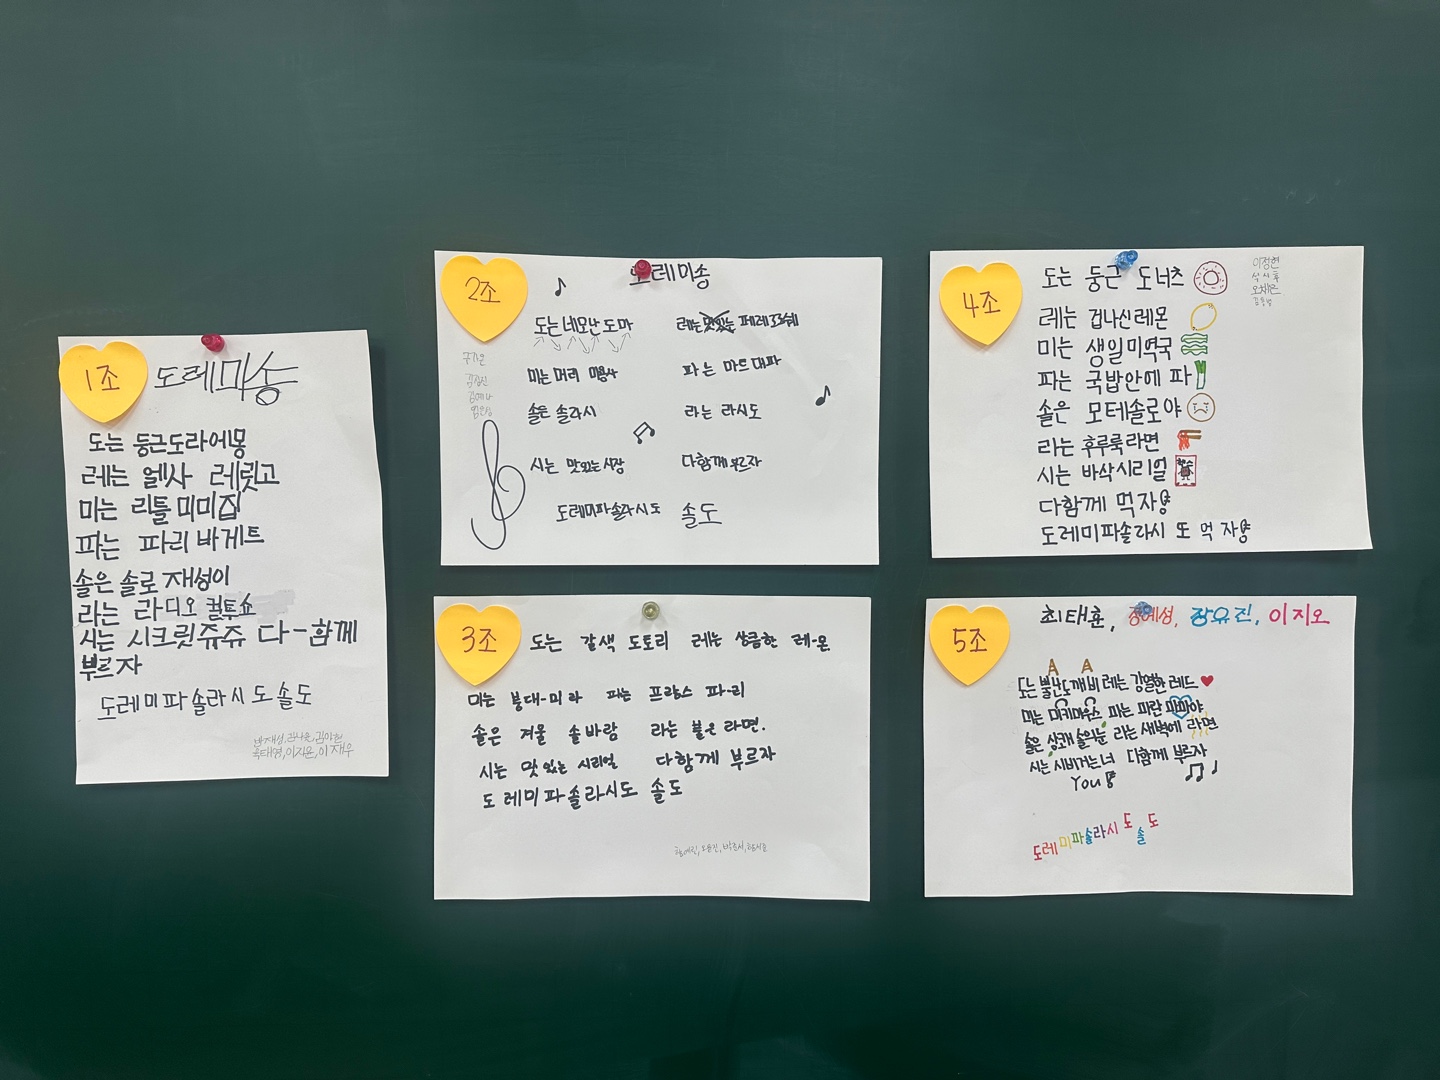 1조
도레미송
도는 둥근도라에몽
레는 엘사 레릿고
미는 리틀미미집
파는 파리바게트
솔은 솔로재성이
라는 라디오 컬투쇼
시는 시크릿쥬쥬 다-함께
부르자
도레미파솔라시도솔도
이지윤, 이재우
2조
도레미송
도는 네모난 도마 레는 페레로로쉐
미는 머리 미용사 파는 마트대파
솔은 솔라시 라는 라시도
시는 맛있는 시장 다함께 부르자
도레미파솔라시도 솔도
3조
도는 갈색 도토리 레는 상큼한 레-몬
미는 붕대-미라 파는 프랑스 파-리
솔은 겨울 솔바람 라는 불은 라면.
시는 맛있는 시리얼 다함께 부르자
도레미파솔라시도 솔도
4조
이정현
도는 둥근 도너츠
레는 겁나신레몬
미는 생일미역국
파는 국밥안에 파
솔은 모테솔로야
라는 후루룩라면
시는 바삭시리얼
다함께 먹자
도레미파솔라시 또 먹자
5조
최태훈, 장예성, 장유진, 이지오
도는 불난도깨비 레는 강렬한 레드
미는 미키마우스 파는 파란 파파야
솔은 상쾌솔의눈 라는 새벽에 라면
시는 시비거는너 다함께 부르자
You
도레미파솔라시도솔도